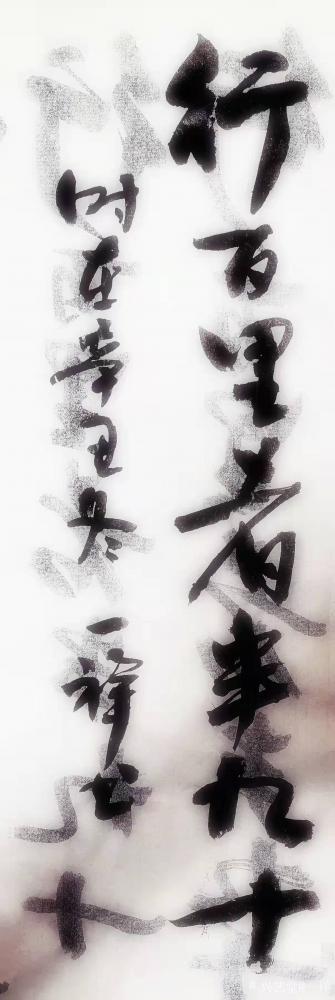 行百里者半九十
时在辛丑冬一禅书